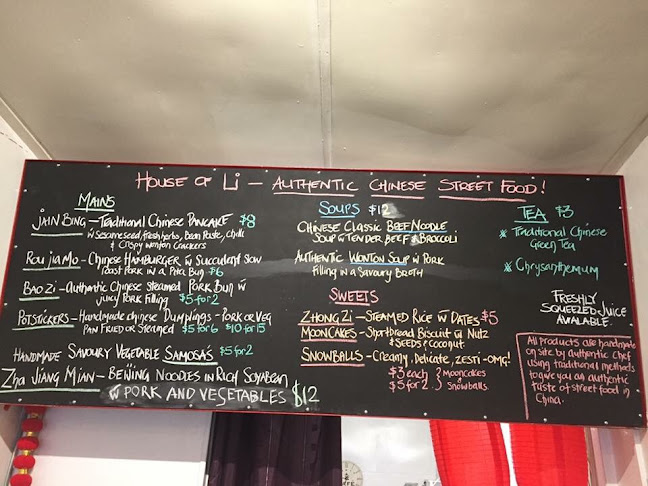 HOUSE OF Li – AUTHENTIC CHINESE STREET FOOD!
MAINS
JAIN BING – Traditional Chinese PANCAKE $8
w Sesame seed, fresh herbs, Bean Paste, chilli
& Crispy wonton Crackers
ROU JIA MO – Chinese HAMBURGER w Succulent Slow
Roast Pork in a Pita Bun $6
BAO ZI – Authentic Chinese Steamed Pork Bun w
Juicy Pork Filling $5 for 2
POTSTICKERS – Handmade Chinese Dumplings – PORK or VEG
PAN FRIED or STEAMED $5 for 6 $10 for 15
HANDMADE SAVOURY VEGETABLE SAMOSA'S $5 for 2
Zha JIANG MIAN – BEIJING NOODLES IN RICH SOYABEAN
w PORK AND VEGETABLES $12
SOUPS $12
CHINESE CLASSIC BEEF NOODLE
SOUP w TENDER BEEF & BROCCOLI
AUTHENTIC WONTON SOUP w PORK
Filling in a Savoury BROTH
SWEETS
ZHONG ZI – STEAMED RICE w DATES $5
MOONCAKES – Shortbread Biscuit w Nutz
& SEEDS & Coconut
SNOWBALLS – Creamy, Delicate, ZESTI – OMG!
$3 each } Mooncakes
$5 for 2 } & Snowballs
TEA $3
* Traditional Chinese
Green Tea
* Chrysanthemum
FRESHLY
SQUEEZED JUICE
AVAILABLE.
All products are handmade
on site by authentic Chef
using traditional methods
to give you an authentic
taste of street food in
China.